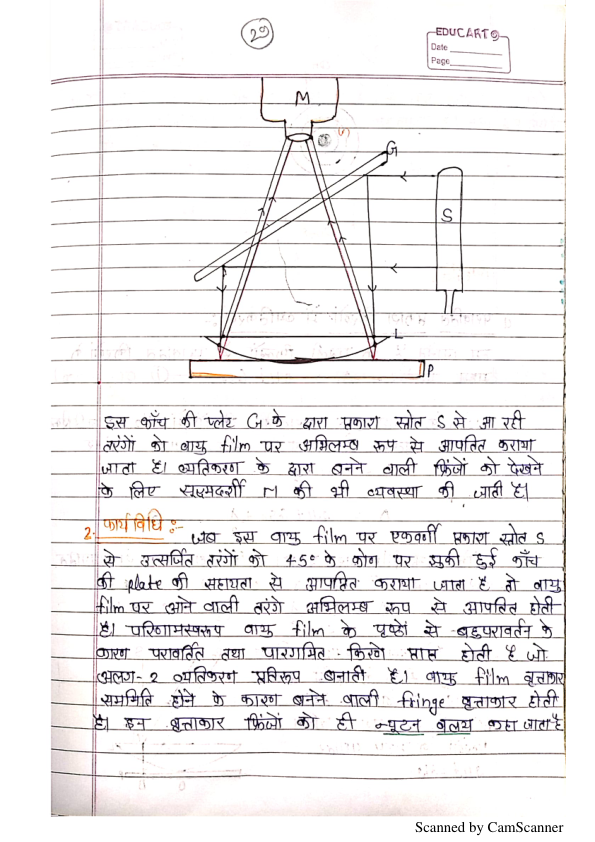 29
EDUCART
Date
Page
M
G
S
L
P
इस काँच की प्लेट G के द्वारा प्रकाश स्त्रोत S से आ रही
तरंगों को वायु film पर अभिलम्ब रूप से आपतित कराया
जाता है। व्यतिकरण के द्वारा बनने वाली फ्रिंजों को देखने
के लिए सूक्ष्मदर्शी M की भी व्यवस्था की जाती है।
2. कार्य विधि :- जब इस वायु film पर एकवर्णी प्रकाश स्त्रोत S
से उत्सर्जित तरंगों को 45° के कोण पर झुकी हुई काँच
की plate की सहायता से आपतित कराया जाता है तो वायु
film पर आने वाली तरंगे अभिलम्ब रूप से आपतित होती
है। परिणामस्वरूप वायु film के पृष्ठों से बहुपरावर्तन के
कारण परावर्तित तथा पारगमित किरणे प्राप्त होती है जो
अलग-2 व्यतिकरण प्रतिरूप बनाती है। वायु film वृत्ताकार
सममिति होने के कारण बनने वाली fringe वृत्ताकार होती
है। इन वृत्ताकार फ्रिंजों को ही न्यूटन वलय कहा जाता है
Scanned by CamScanner